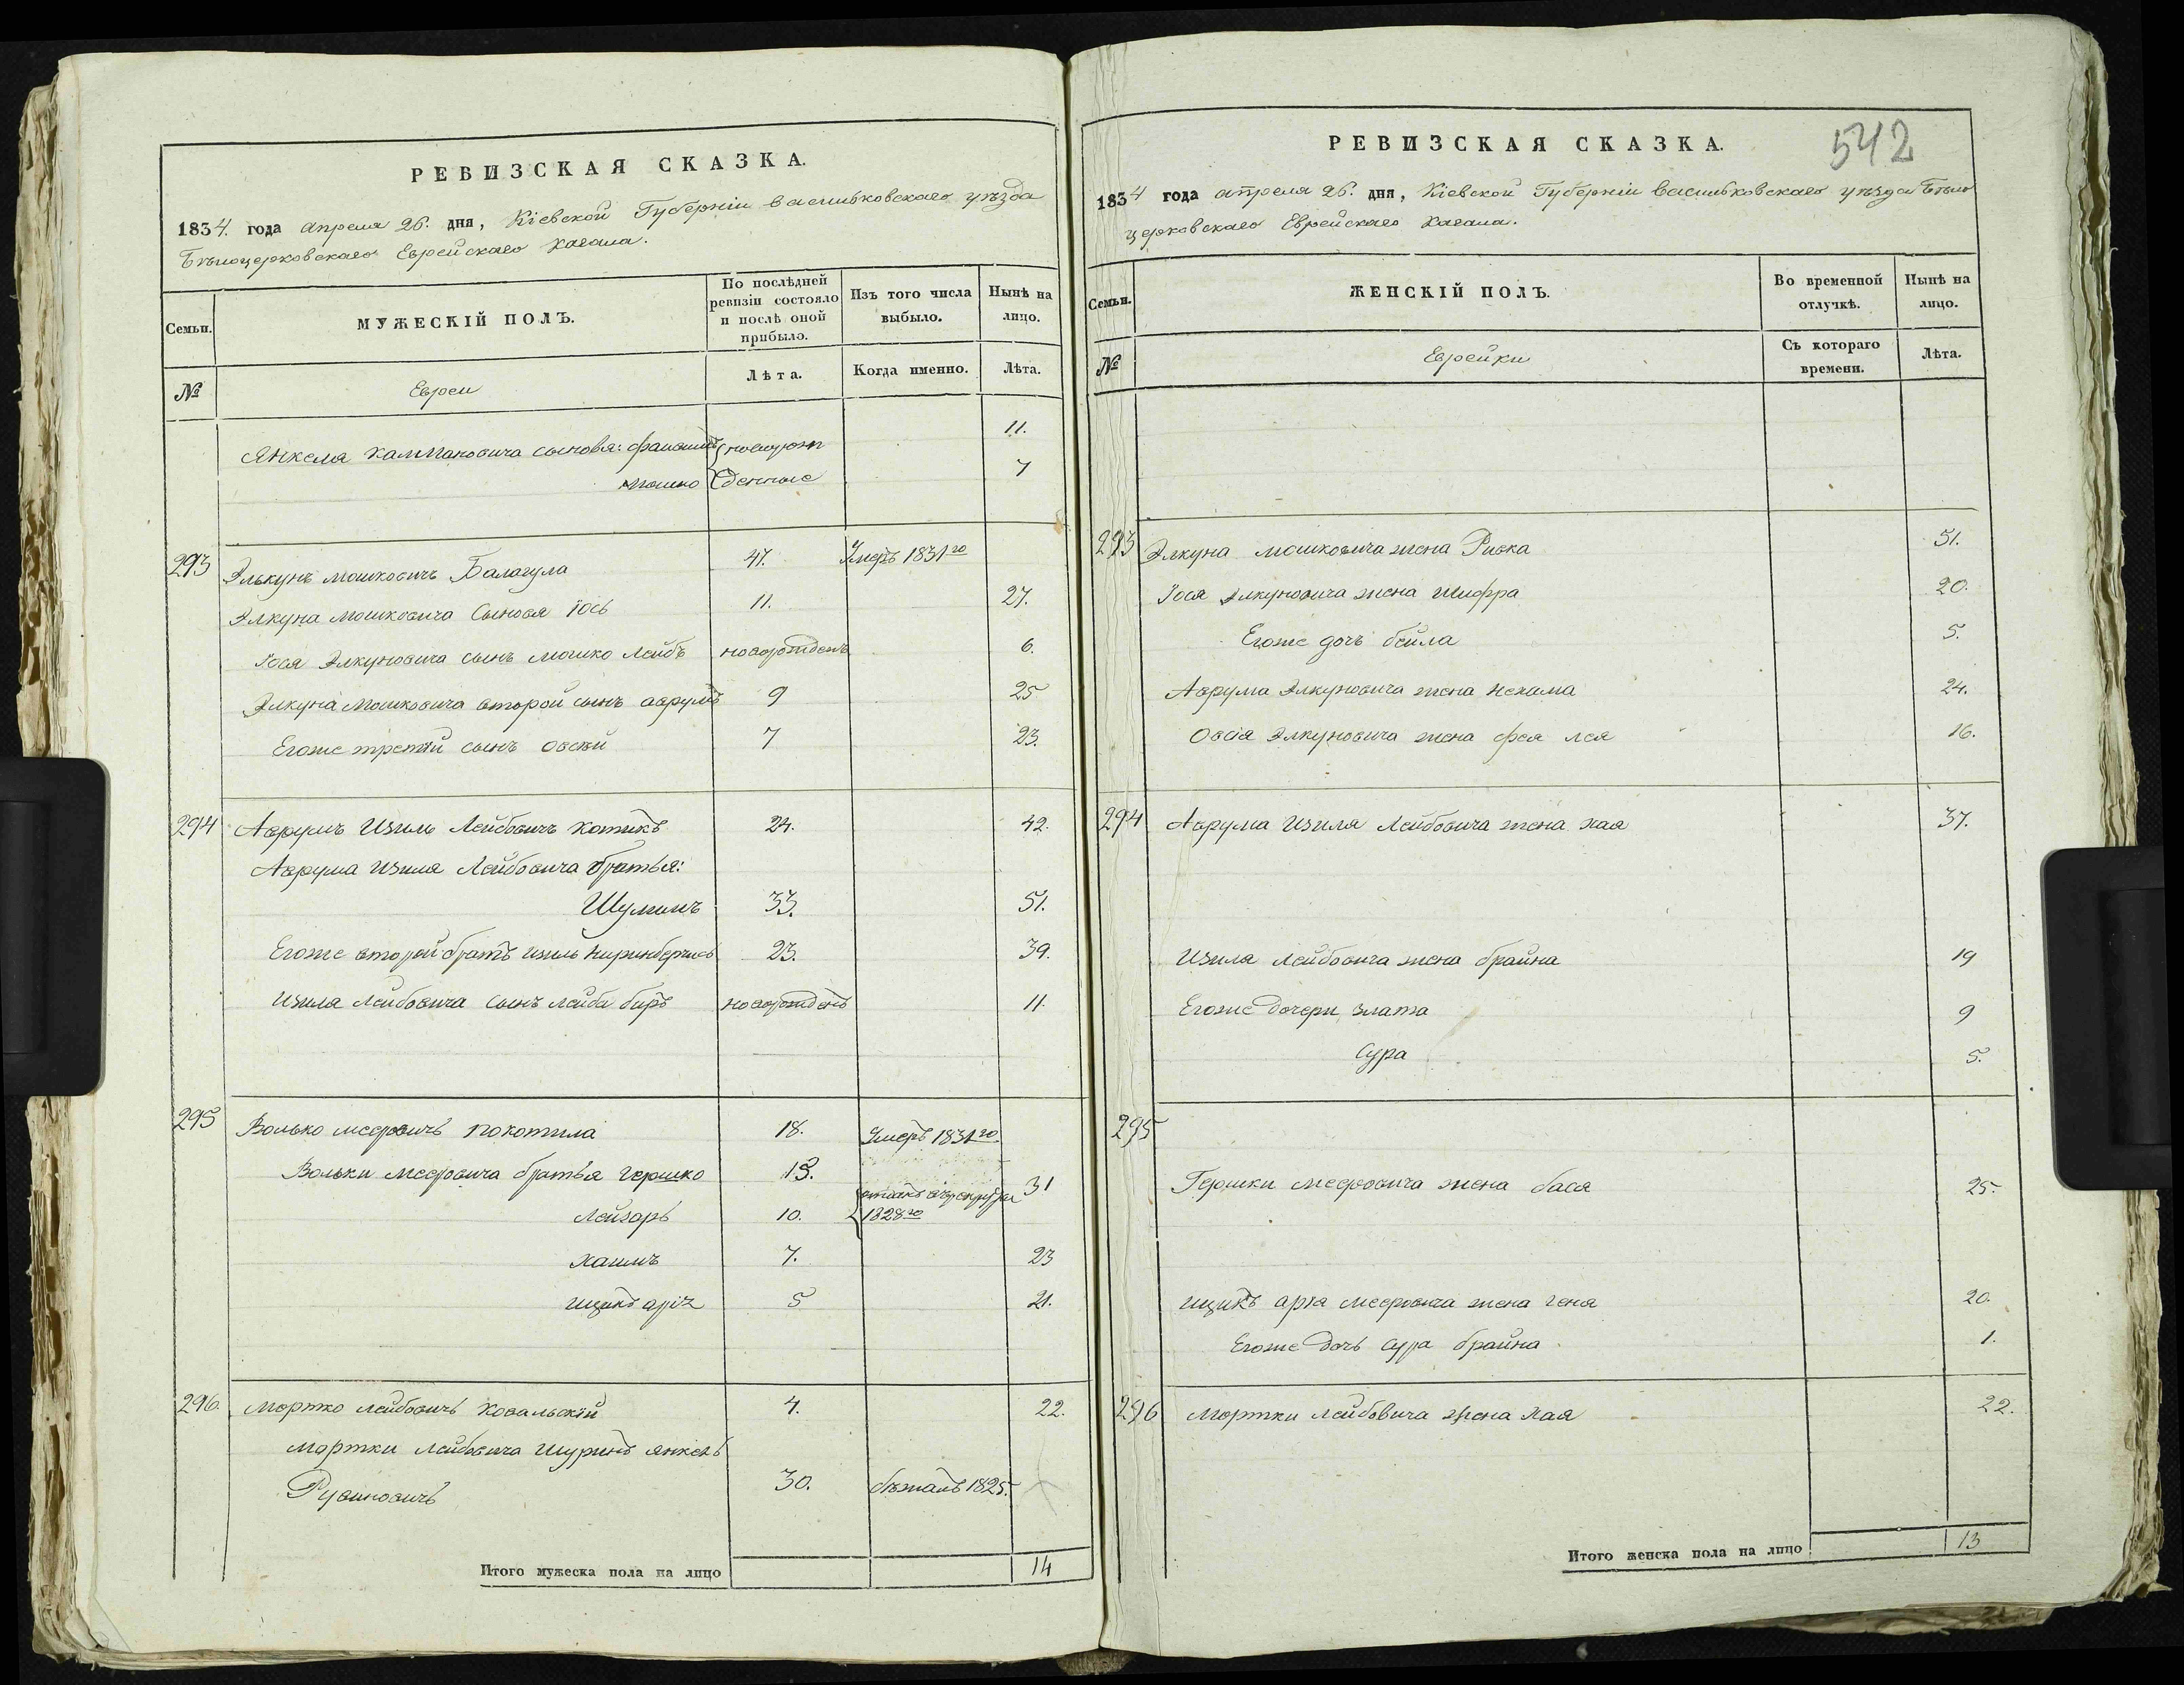 РЕВИЗСКАЯ СКАЗКА.
1834. года Апреля 26. дня, Кіевской Губерніи Васильковскаго уѣзда
Бѣлоцерковскаго Еврейскаго Кагала.
Семьи.
МУЖЕСКІЙ ПОЛЪ.
По послѣдней
ревизіи состояло
и послѣ оной
прибыло.
Изъ того числа
выбыло.
Нынѣ на
лицо.
№
Евреи
Лѣта.
Когда именно.
Лѣта.
Янкеля Калмановича сыновья: новорож 11.
Мошко денные 7
293 Элькунъ Мошковичъ Балагула 47. Умеръ 1831го
Элкуна Мошковича Сыновья Іось 11. 27.
Іося Элкуновича сынъ Мошко Лейбъ новорожденъ 6.
Элкуна Мошковича второй сынъ Аврумъ 9 25
Егоже третій сынъ Овсій 7 23.
294 Аврумъ Изиль Лейбовичъ Котикъ 24. 42.
Аврума Изиля Лейбовича братья:
Шулимъ 33. 51.
Егоже второй братъ Изиль 23. 39.
Изиля Лейбовича Сынъ Лейба Биръ новорожденъ 11.
295 Волько Мееровичъ Покотила 18. Умеръ 1831го.
Вольки Мееровича братья Гершко 15. 31
Лейзоръ 10. 1828го
Хаимъ 7. 23
Ицикъ Аріа 5 21.
296. Мортко Лейбовичъ Ковальскій 4. 22.
Мортки Лейбовича Шуринъ Янкель
Рувиновичъ 30. бѣжалъ 1825.
Итого мужеска пола на лицо 14
542
РЕВИЗСКАЯ СКАЗКА.
1834 года Апреля 26. дня, Кіевской Губерніи Васильковскаго уѣзда Бѣло
церковскаго Еврейскаго Кагала.
Семьи.
ЖЕНСКІЙ ПОЛЪ.
Во временной
отлучкѣ.
Нынѣ на
лицо.
№
Еврейки
Съ котораго
времени.
Лѣта.
293 Элкуна Мошковича жена Ривка 51.
Іося Элкуновича жена Шифра 20.
Егоже дочь Бейла 5.
Аврума Элкуновича жена Нехама 24.
Овсія Элкуновича жена Фея Лея 16.
294 Аврума Изиля Лейбовича жена Хая 37.
Изиля Лейбовича жена Брайна 19
Егоже Дочери Злата 9
Сура 5.
295
Гершки Мееровича жена Бася 25.
Ицикъ Аріа Мееровича жена Геня 20.
Егоже Дочь Сура Брайна 1.
296 Мортки Лейбовича жена Хая 22.
Итого женска пола на лицо 13